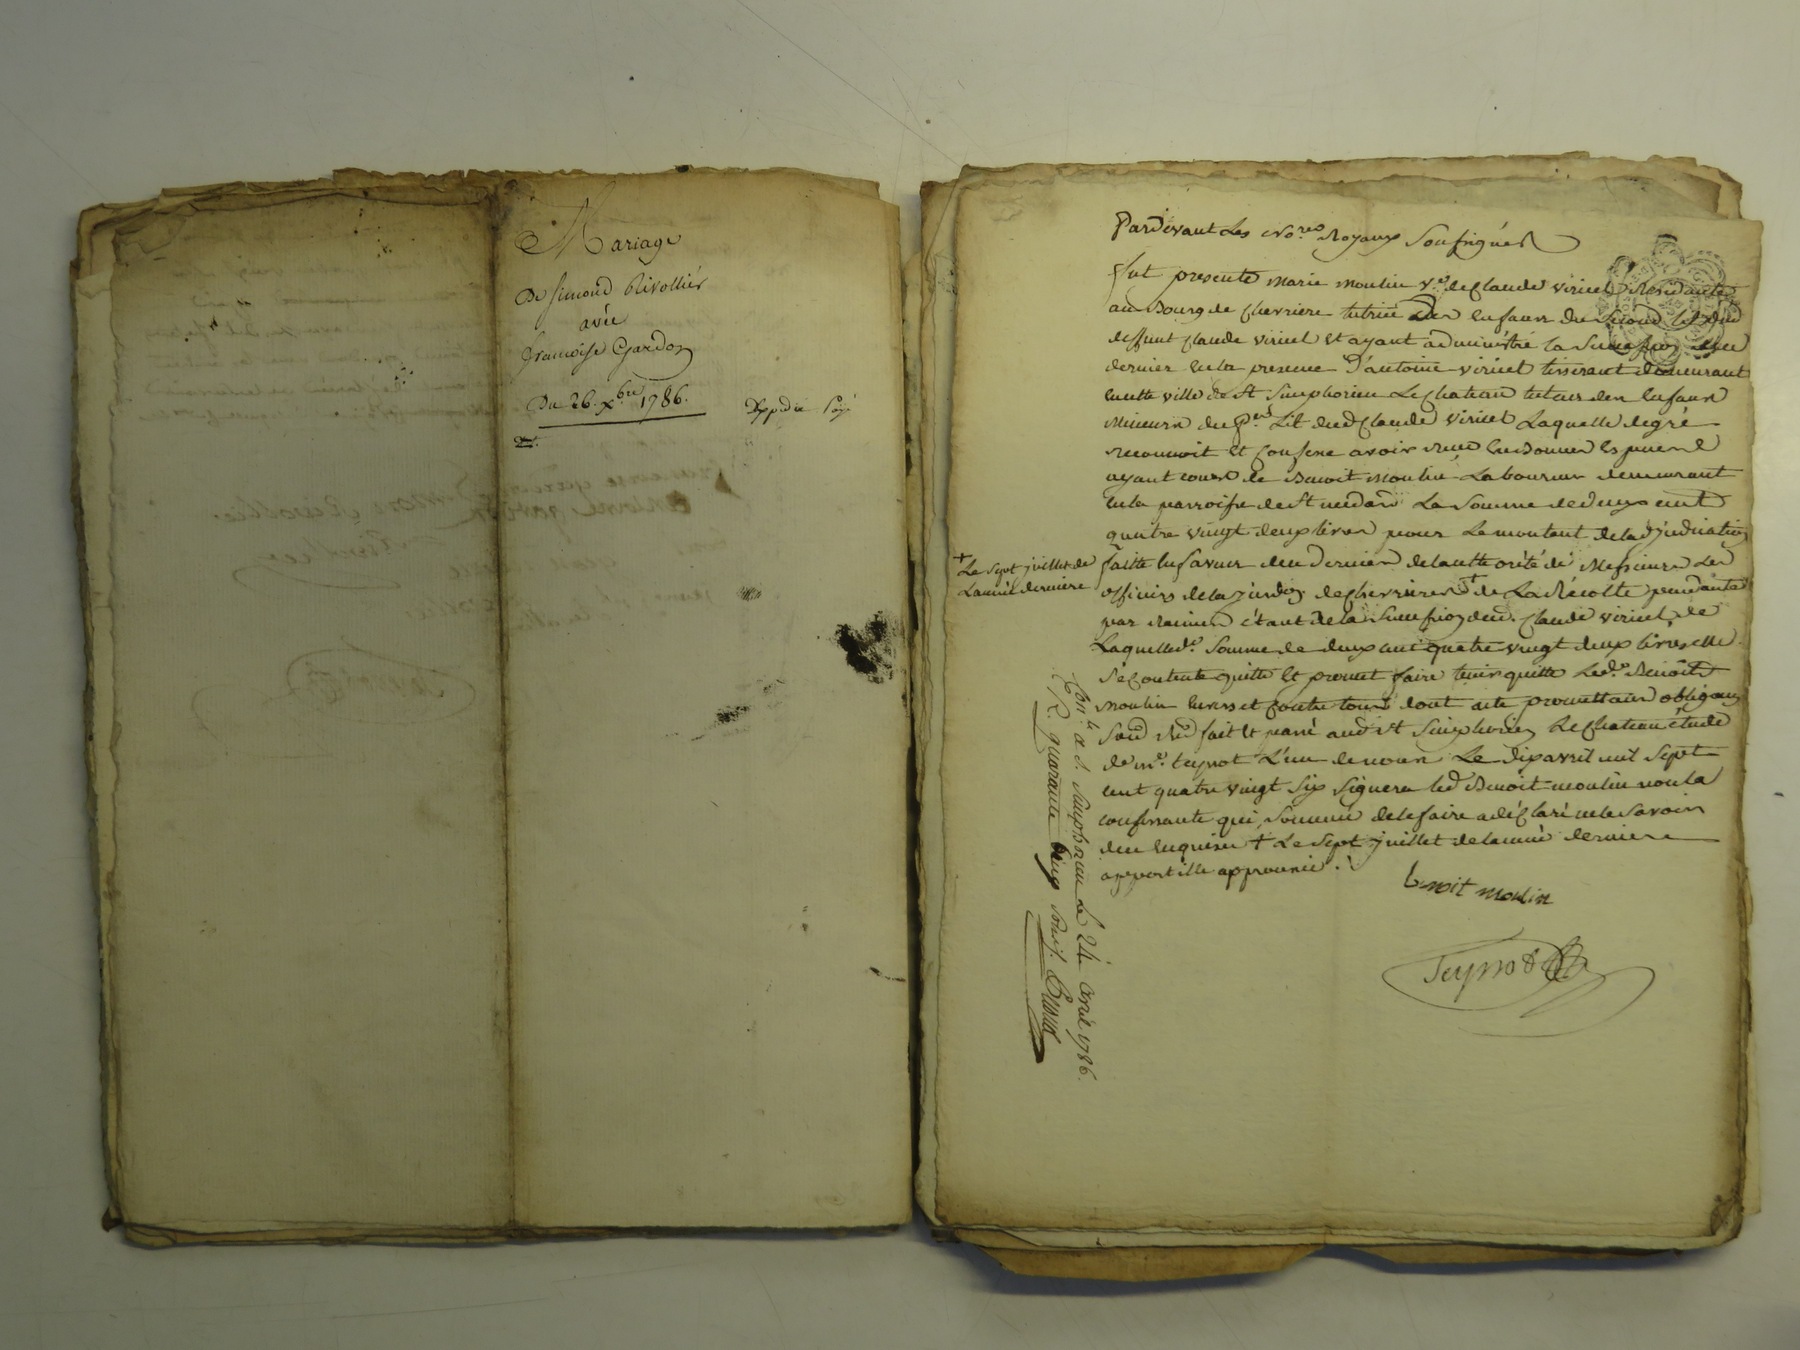 Mariage
De Simond Rivollier
avec
francoise Gardon
Du 26. xbre 1786.
Expedié Payé
Pardevant Les No.res Royaux Soussignés
fut presente marie moulin v.e de Claude viricel Residante
au Bourg de Chevriere tutrice Des Enfans du second Lit dud
deffunt Claude viricel Et ayant administré La succession de ce
dernier En la presence D'antoine viricel tisserant demeurant
En cette ville de St Simphorien Le Chateau tuteur des Enfans
Mineurs du p.er Lit dud Claude viricel Laquelle de gré
reconnoit Et Confesse avoir reçu En Bonnes Especes
ayant cours de Benoit Moulin Laboureur demeurant
En la parroisse de St medard La Somme de deux cent
quatre vingt deux livres pour Le montant de l'adjudication
faitte En faveur de ce dernier de l'authorité de Messieurs Les
officiers de la jurdon de Chevrieres + de La Récolte pendante
par racines étant de la Succession dud. Claude viricel de
Laquelle d.e Somme de deux cent quatre vingt deux livres elle
Se Contente quitte Et promet faire tenir quitte Led. Benoit
Moulin Envers et Contre tous dont acte promettans obligeans
fait Et passé aud St Simphorien Le Chateau étude
de m.e teynot L'un de nous Le dix avril mil Sept
cent quatre vingt Six Signera led Benoit moulin non la
confessante qui Sommée de le faire a déclaré ne le Savoir
de ce Enquise + Le Sept juillet de l'année derniere
apostille approuvée.
+ Le Sept juillet de
L'année derniere
Con.lé a S. Simphorien Le 24 avril 1786.
R. quarante cinq sous.
benoit moulin
Teynot